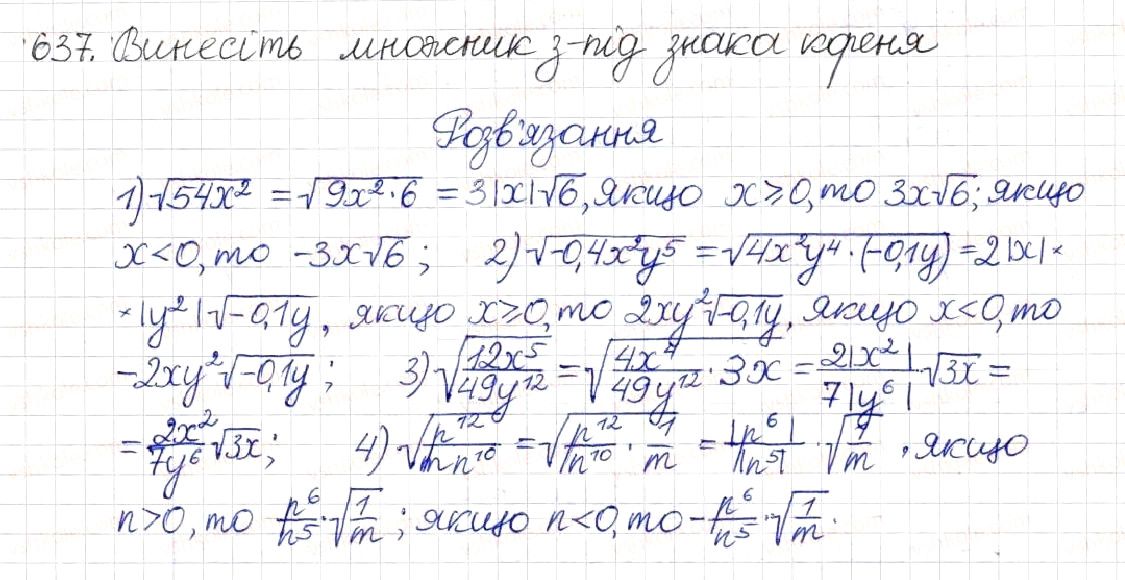 637. Винесіть множник з-під знака кореня
Розв'язання
1) √54x² = √9x²·6 = 3|x|√6, якщо x⩾0, то 3x√6; якщо
x<0, то -3x√6; 2) √-0,4x²y⁵ = √4x²y⁴·(-0,1y) = 2|x|×
×|y²|√-0,1y, якщо x⩾0, то 2xy²√-0,1y, якщо x<0, то
-2xy²√-0,1y; 3) √12x⁵/49y¹² = √4x⁴/49y¹²·3x = 2|x²|/7|y⁶|·√3x =
= 2x²/7y⁶√3x; 4) √p¹²/mn¹⁰ = √p¹²/n¹⁰·1/m = |p⁶|/|n⁵|·√1/m, якщо
n>0, то p⁶/n⁵·√1/m; якщо n<0, то -p⁶/n⁵·√1/m.